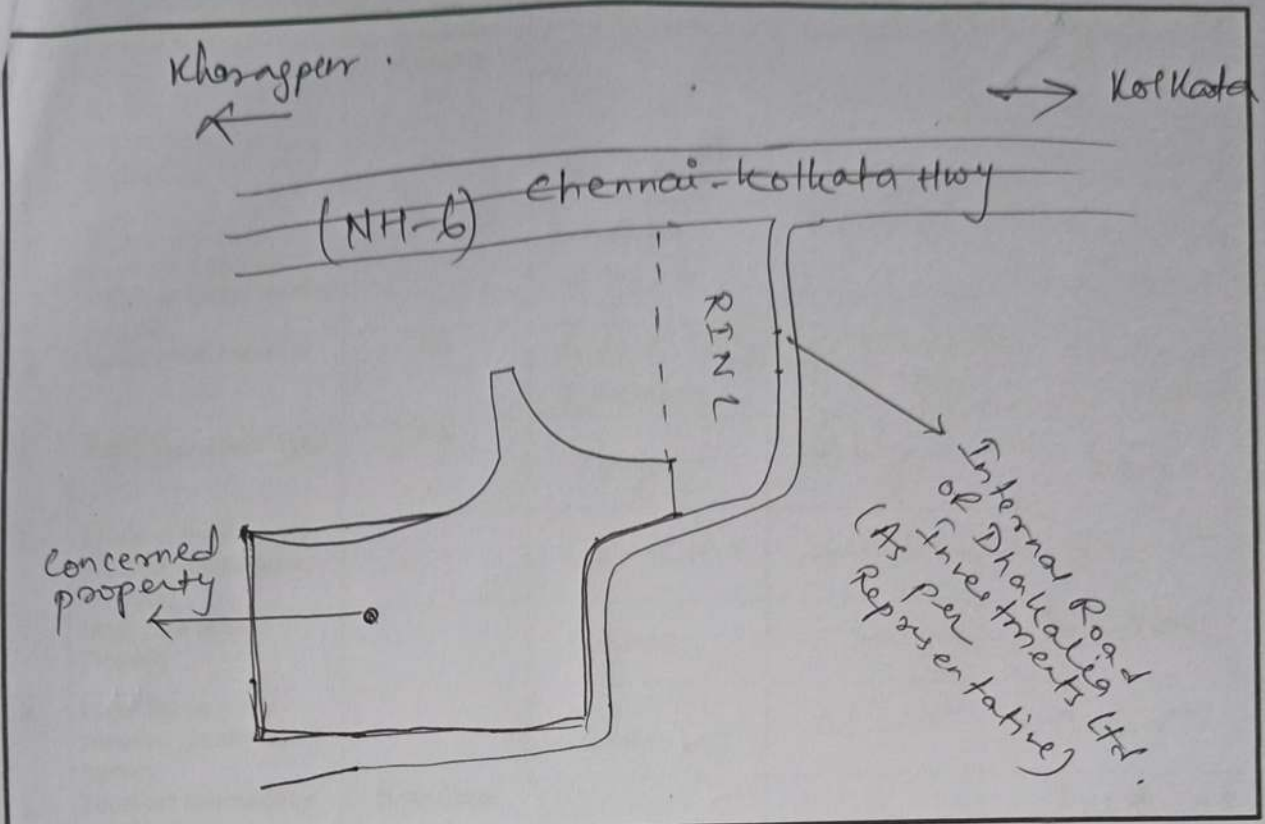 Kharagpur.
Kolkata
Chennai-Kolkata Hwy
(NH-6)
RINL
Concerned
property
Internal Road
OR Dhakalia
Investments Ltd.
(As per
Representative)